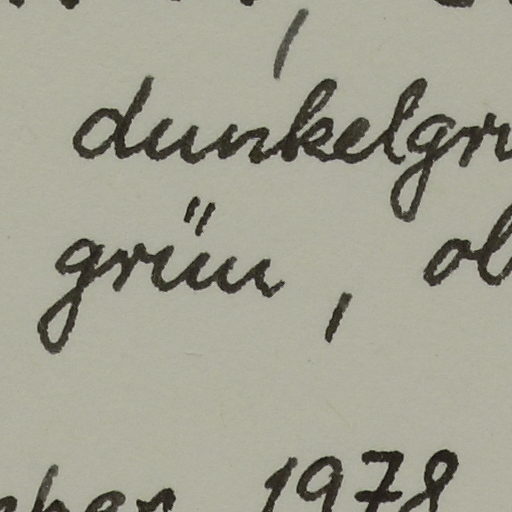 dunkelgrü
grün, ob
1978